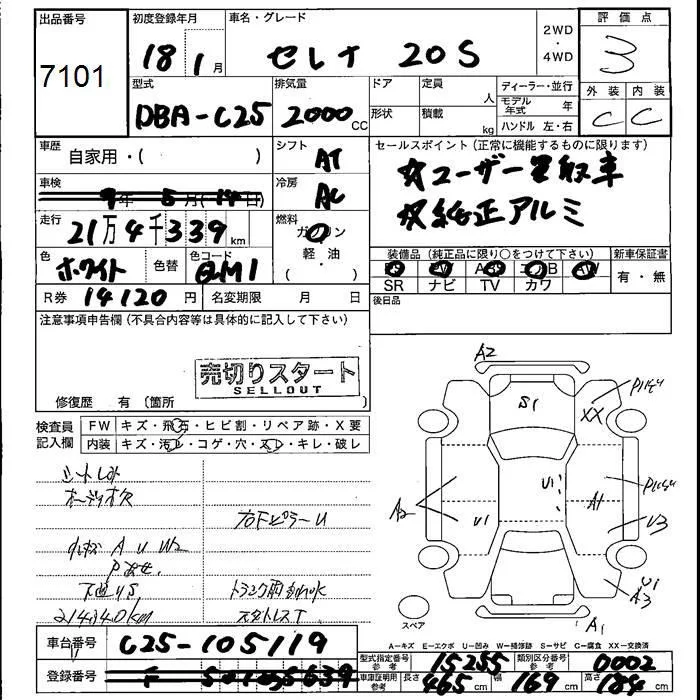 出品番号 初度登録年月 車名・グレード 2WD・4WD 評価点
7101 18年1月 セレナ 20S 3
型式 排気量 ドア 定員 人 ディーラー・並行 外装 内装
DBA-C25 2000cc 形状 積載 kg モデル年式 年 C C
ハンドル 左・右
車歴 自家用・( ) シフト AT セールスポイント(正常に機能するものに限ります)
車検 9年5月(14日) 冷房 AC ☆ユーザー買取車
走行 21万4千339km 燃料 ガソリン 軽・油 ( ) ☆純正アルミ
色 ホワイト 色替 色コード QM1 装備品(純正品に限り○をつけて下さい) 新車保証書
PS PW ABS エアB AW 有・無
SR ナビ TV カワ
R券 14120円 名変期限 月 日 後日品
注意事項申告欄(不具合内容等は具体的に記入して下さい)
売切りスタート
SELLOUT
修復歴 有(箇所 )
検査員記入欄 FW キズ・飛石・ヒビ割・リペア跡・X要
内装 キズ・汚レ・コゲ・穴・スレ・キレ・破レ
シートしみ
オーディオ欠
右Fピラーu
AUW2
P
下廻りS
214340km
スタットレスT
A2
S1
XX
Pハゲ
A2
U1
U1
A1
Pハゲ
U3
U1
A3
A1
スペア
A=キズ E=エクボ U=凹み W=補修跡 S=サビ C=腐食 XX=交換済
車台番号 C25-105119
型式指定番号 参考 15255 類別区分番号 参考 0002
登録番号
車庫証明用 参考 長さ 465cm 幅 169cm 高さ 184cm